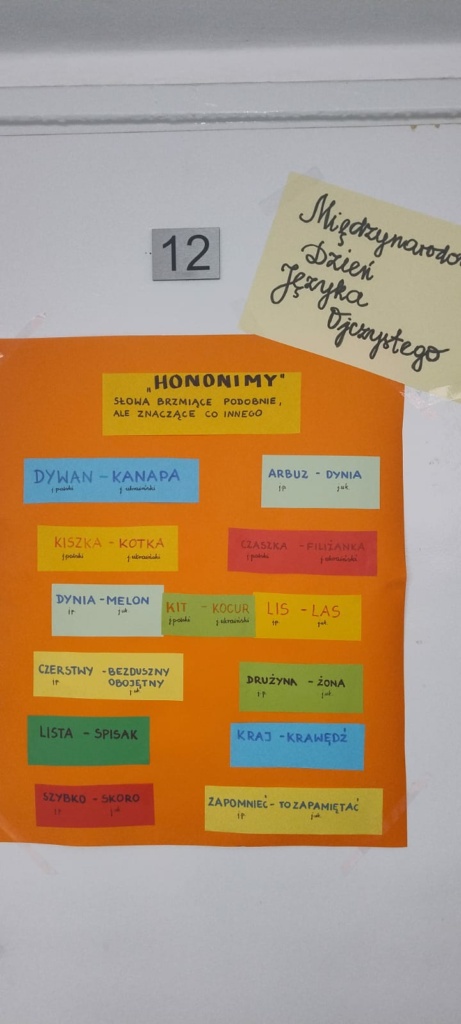 12
Międzynarodo
Dzień
Języka
Ojczystego
„HONONIMY"
SŁOWA BRZMIĄCE PODOBNIE,
ALE ZNACZĄCE CO INNEGO
DYWAN - KANAPA
j.polski j. ukraiński
ARBUZ - DYNIA
j.p. j.uk.
KISZKA - KOTKA
j.polski j.ukraiński
CZASZKA - FILIŻANKA
j.polski j.ukraiński
DYNIA - MELON
j.p. j.uk.
KIT - KOCUR
j.polski j.ukraiński
LIS - LAS
j.p. j.uk.
CZERSTWY - BEZDUSZNY
OBOJĘTNY
j.p. j.uk.
DRUŻYNA - ŻONA
j.p. j.uk.
LISTA - SPISAK
KRAJ - KRAWĘDŹ
SZYBKO - SKORO
j.p. j.uk.
ZAPOMNIEĆ - TO ZAPAMIĘTAĆ
j.p. j.uk.